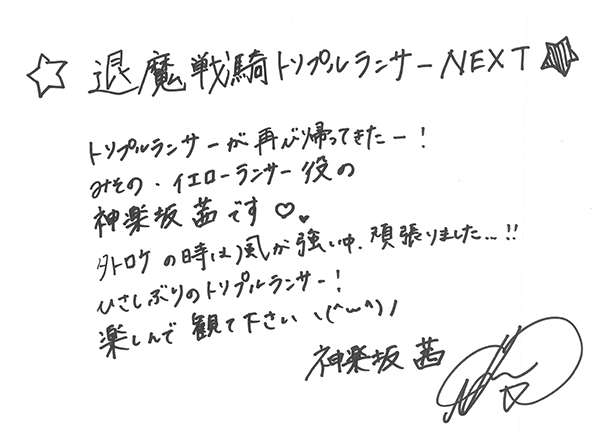 ☆ 退魔戦騎トリプルランサーNEXT ☆
トリプルランサーが再び帰ってきたー!
みその・イエローランサー役の
神楽坂茜です♡♥
外ロケの時は風が強い中、頑張りました…!!
ひさしぶりのトリプルランサー!
楽しんで観て下さいヽ(^ω^)ノ
神楽坂茜